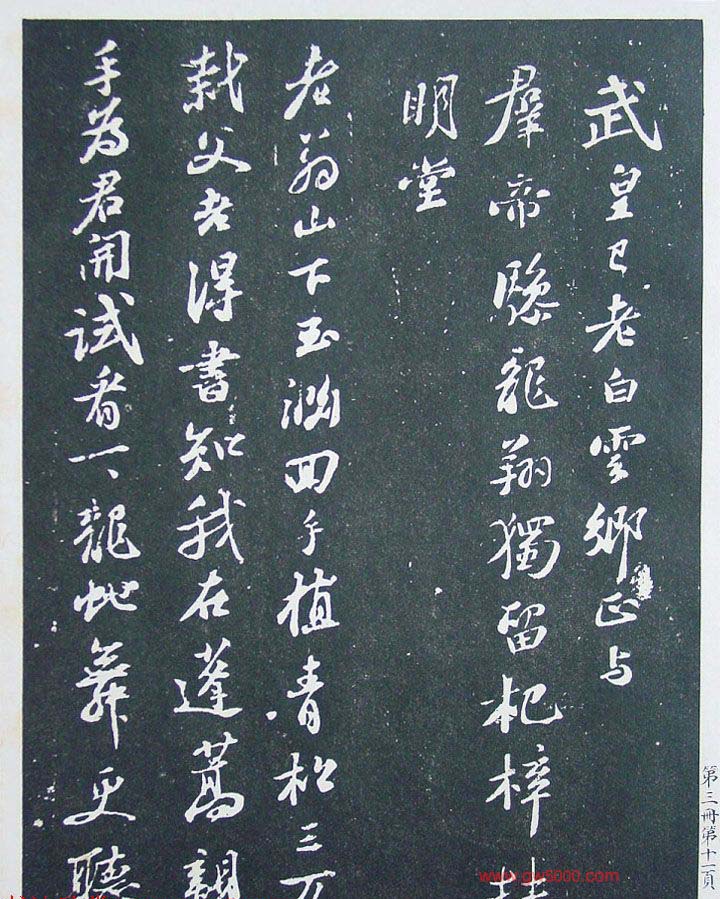 武皇已老白雲鄉正与
羣帝驂龍翔獨留杞梓扶
明堂
老翁山下玉淵回手植青松三万
栽父老得書知我在蓬蒿親
手為君開試看一一龍蛇舞更聽
第三冊第十一頁
www.gw5000.com